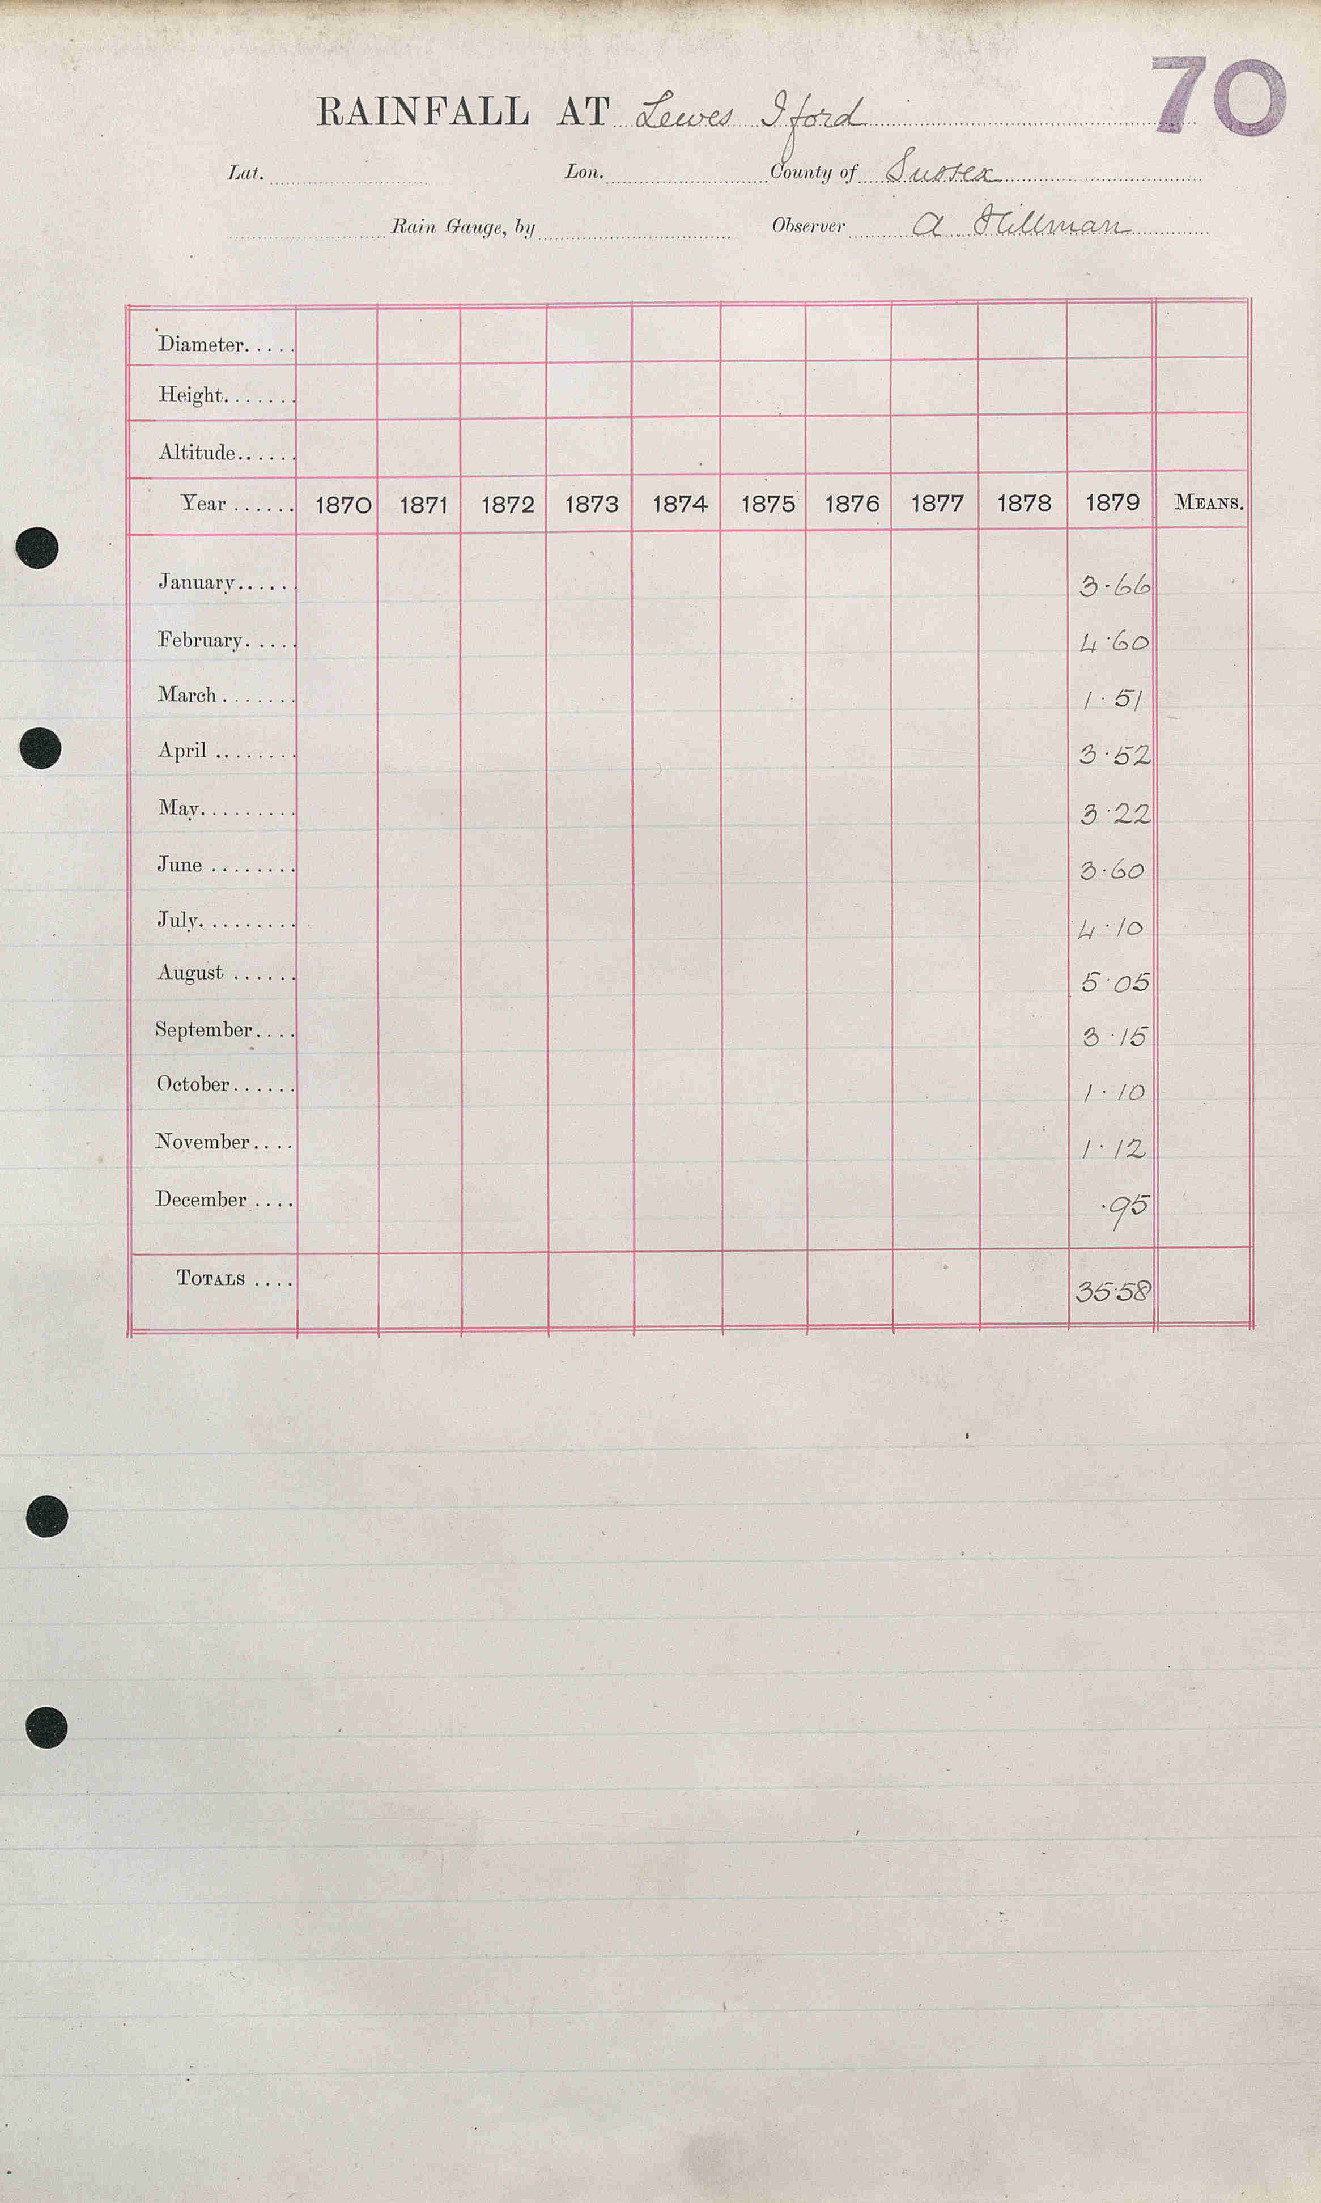 70
RAINFALL AT Lewes Iford
Lat. Lon. County of Sussex
Rain Gauge, by Observer A Hillman
Diameter.....
Height.......
Altitude......
Year ...... 1870 1871 1872 1873 1874 1875 1876 1877 1878 1879 MEANS.
January..... 3.66
February..... 4.60
March ....... 1.51
April ........ 3.52
May......... 3.22
June ........ 3.60
July......... 4.10
August ...... 5.05
September.... 3.15
October...... 1.10
November.... 1.12
December .... .95
TOTALS .... 35.58